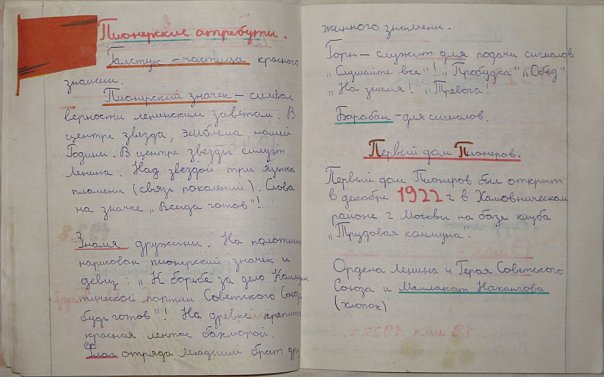 Пионерские атрибуты.
Галстук – частица красного
знамени.
Пионерский значок – символ
верности ленинским заветам. В
центре звезда, эмблема нашей
Родины. В центре звезды силуэт
Ленина. Над звездой три языка
пламени (связь поколений). Слова
на значке „Всегда готов"!
Знамя дружины. На полотнище
нарисован пионерский значок и
девиз: „К борьбе за дело Коммунис
тической партии Советского Союза
будь готов"! На древке крепится
красная лента с бахромой.
Флаг отряда младший брат дру
жинного знамени.
Горн – служит для подачи сигналов
„Слушайте все"! „Пробудка" „Обед"
„На знамя! „Тревога!
Барабан – для сигналов.
Первый дом Пионеров.
Первый дом Пионеров был открыт
в декабре 1922 г в Хамовническом
районе г Москвы на базе клуба
„Трудовая коммуна".
Ордена Ленина и Героя Советского
Союза и Мамлакат Нахангова
(хлопок)